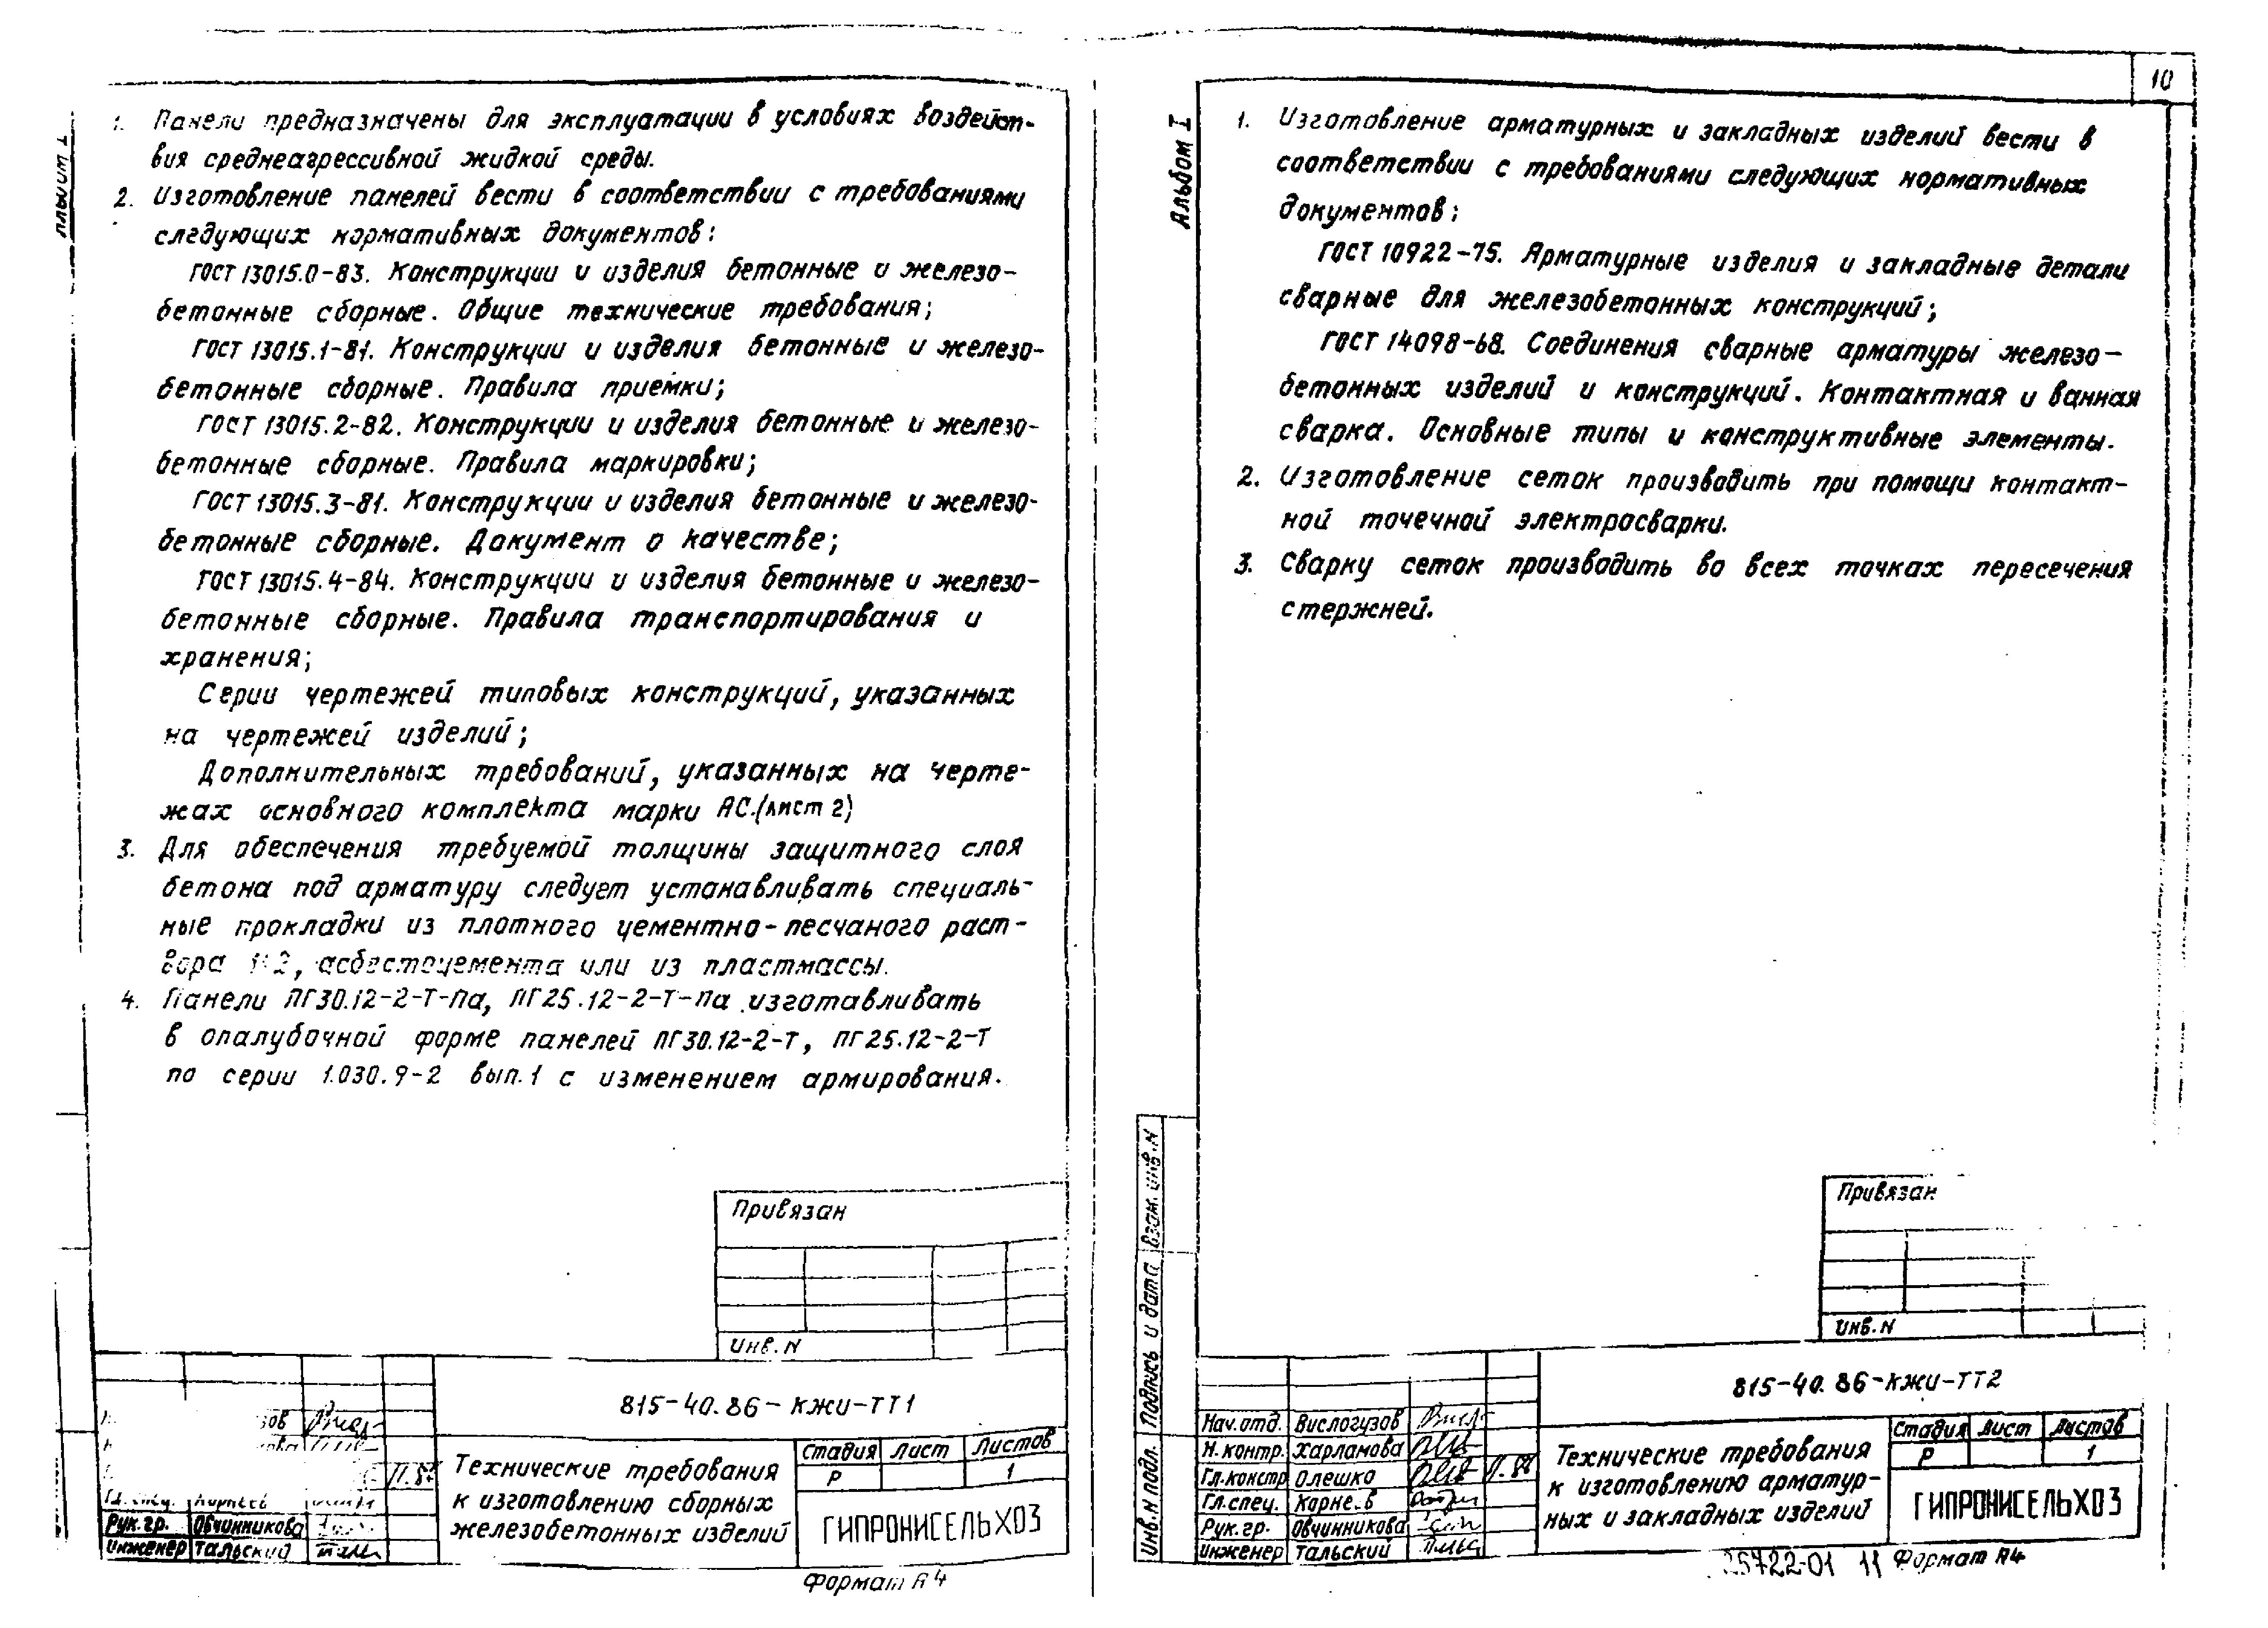 1. Панели предназначены для эксплуатации в условиях воздейст-
вия среднеагрессивной жидкой среды.
2. Изготовление панелей вести в соответствии с требованиями
следующих нормативных документов:
ГОСТ 13015.0-83. Конструкции и изделия бетонные и железо-
бетонные сборные. Общие технические требования;
ГОСТ 13015.1-81. Конструкции и изделия бетонные и железо-
бетонные сборные. Правила приемки;
ГОСТ 13015.2-82. Конструкции и изделия бетонные и железо-
бетонные сборные. Правила маркировки;
ГОСТ 13015.3-81. Конструкции и изделия бетонные и железо-
бетонные сборные. Документ о качестве;
ГОСТ 13015.4-84. Конструкции и изделия бетонные и железо-
бетонные сборные. Правила транспортирования и
хранения;
Серии чертежей типовых конструкций, указанных
на чертежей изделий;
Дополнительных требований, указанных на черте-
жах основного комплекта марки АС.(лист 2)
3. Для обеспечения требуемой толщины защитного слоя
бетона под арматуру следует устанавливать специаль-
ные прокладки из плотного цементно-песчаного раст-
вора 1:2, асбестоцемента или из пластмассы.
4. Панели ПГ30.12-2-Т-Па, ПГ25.12-2-Т-Па изготавливать
в опалубочной форме панелей ПГ30.12-2-Т, ПГ25.12-2-Т
по серии 1.030.9-2 вып.1 с изменением армирования.
Привязан
Инв.N
815-40.86-КЖИ-ТТ1
Технические требования
к изготовлению сборных
железобетонных изделий
Стадия Лист Листов
Р 1
ГИПРОНИСЕЛЬХОЗ
Рук.гр. Овчинникова
Инженер Тальский
Формат А4
10
Альбом I
1. Изготовление арматурных и закладных изделий вести в
соответствии с требованиями следующих нормативных
документов:
ГОСТ 10922-75. Арматурные изделия и закладные детали
сварные для железобетонных конструкций;
ГОСТ 14098-68. Соединения сварные арматуры железо-
бетонных изделий и конструкций. Контактная и ванная
сварка. Основные типы и конструктивные элементы.
2. Изготовление сеток производить при помощи контакт-
ной точечной электросварки.
3. Сварку сеток производить во всех точках пересечения
стержней.
Инв.N подл. Подпись и дата Взам. инв.N
Привязан
Инв.N
815-40.86-КЖИ-ТТ2
Нач.отд. Вислогузов
Н.контр. Харламова
Гл.констр Олешко
Гл.спец. Корнеев
Рук.гр. Овчинникова
Инженер Тальский
Технические требования
к изготовлению арматур-
ных и закладных изделий
Стадия Лист Листов
Р 1
ГИПРОНИСЕЛЬХОЗ
25722-01 11 Формат А4